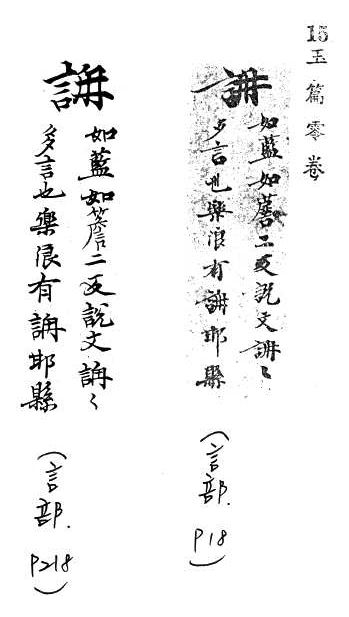 15 玉篇零卷
䛁
如藍如簷二反說文䛁〻
多言也樂浪有䛁耶縣
(言部. P18)
䛁
如藍如簷二反說文䛁〻
多言也樂浪有䛁耶縣
(言部. P218)